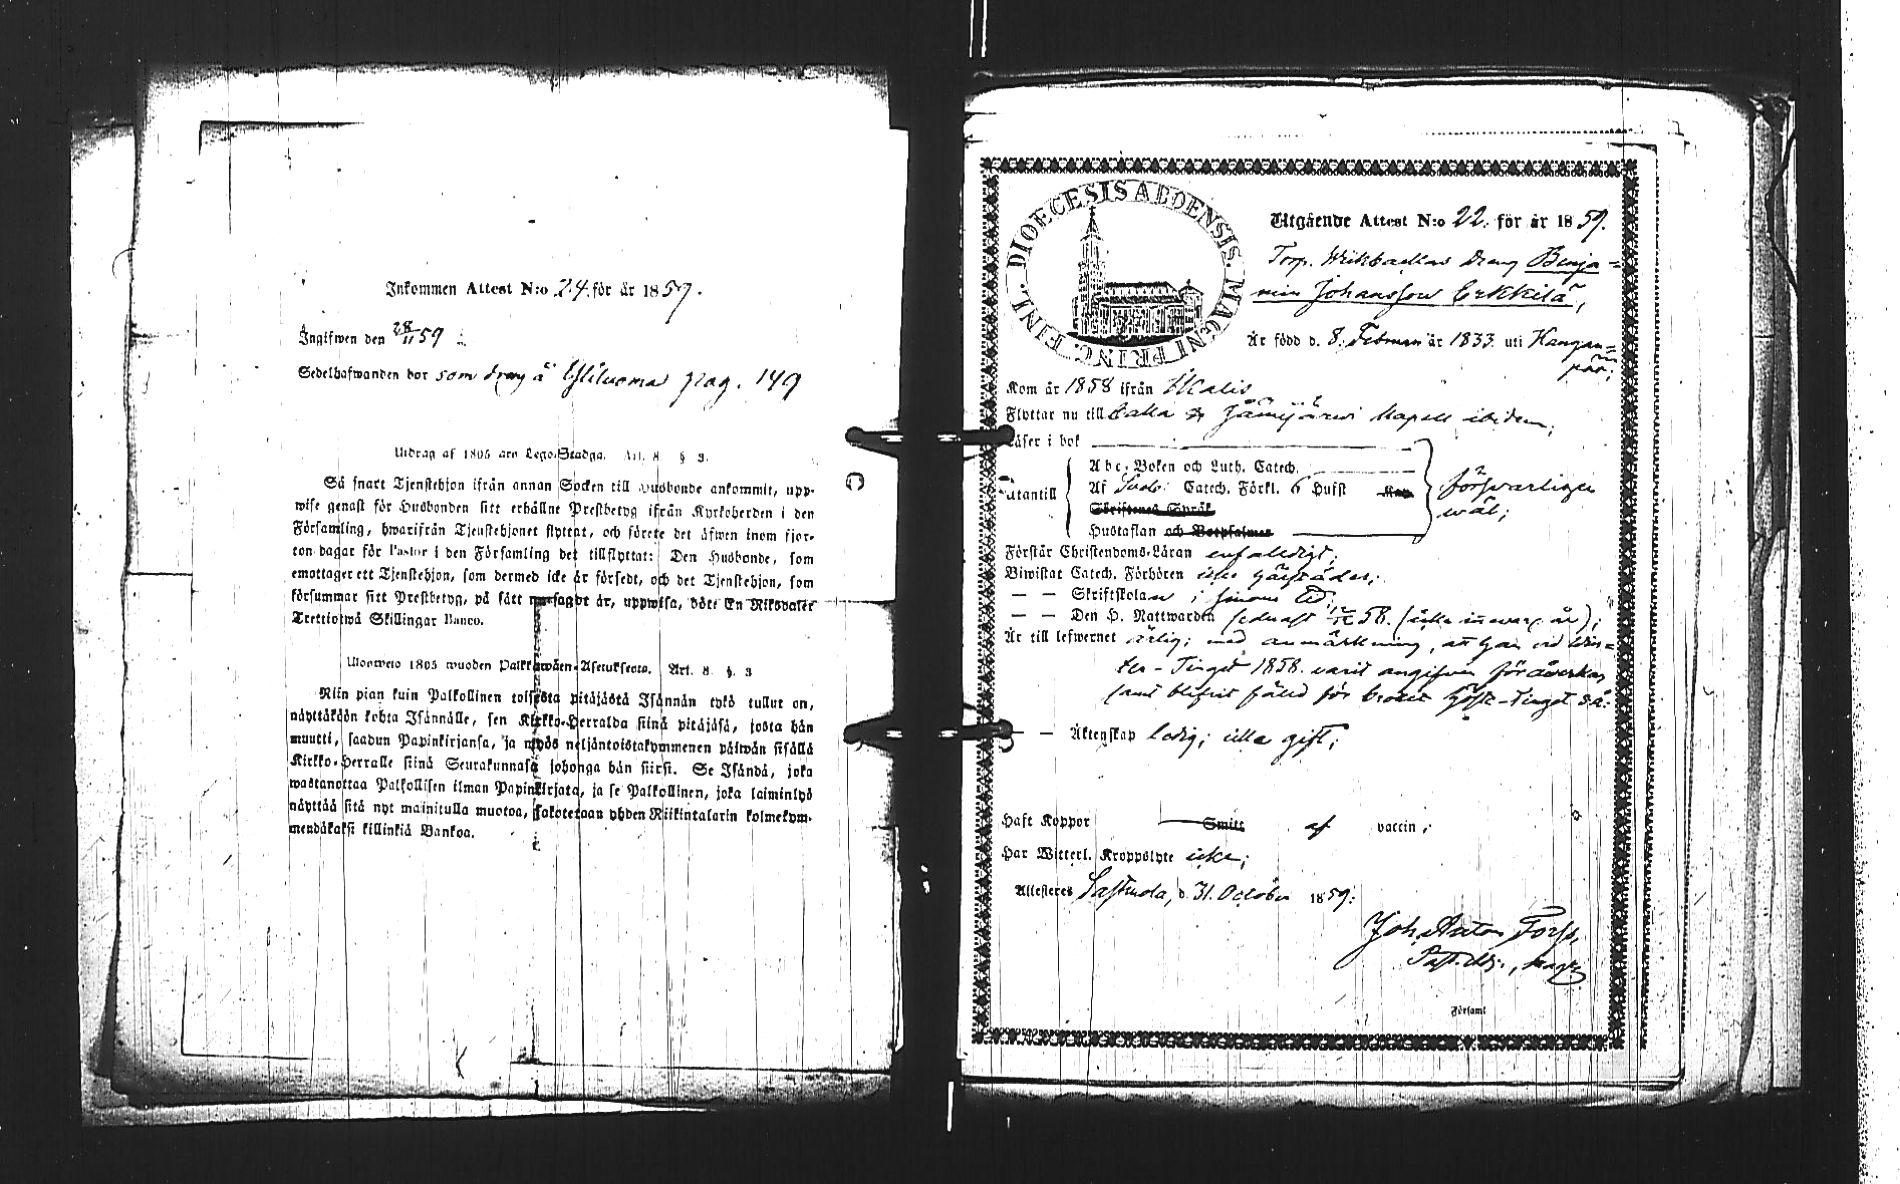 Inkommen Attest N:o 24. för år 1859.
Ingifwen den 28/11 59
Sedelhafwanden bor som dreng å Yliluoma pag. 149
Utdrag af 1805 års Lego-Stadga. Art. 8 § 3.
Så snart Tjenstehjon ifrån annan Socken till Husbonde ankommit, upp-
wise genast för Husbonden sitt erhållne Prestbetyg ifrån Kyrkoherden i den
Församling, hwarifrån Tjenstehjonet flyttat, och förete det äfwen inom fjor-
ton dagar för Pastor i den Församling det tillflyttat: Den Husbonde, som
emottager ett Tjenstehjon, som dermed icke är försedt, och det Tjenstehjon, som
försummar sitt Prestbetyg, på sätt nu sagdt är, uppwisa, böte En Riksdaler
Trettiotwå Skillingar Banco.
Uloswето 1805 wuoden Palkkawäen-Asetuksesta. Art. 8. §. 3
Niin pian kuin Palkollinen toisesta pitäjästä Isännän tykö tullut on,
näyttäköön kohta Isännälle, sen Kirkko-Herralda siinä pitäjäsä, josta hän
muutti, saadun Papinkirjansa, ja myös neljäntoistakymmenen päiwän sisällä
Kirkko-Herralle siinä Seurakunnasa johonga hän siirsi. Se Isändä, joka
wastanottaa Palkollisen ilman Papinkirjata, ja se Palkollinen, joka laiminlyö
näyttää sitä nyt mainitulla muotoa, sakotetaan yhden Riikintalarin kolmekym-
mendäkaksi killinkiä Bankoa.
DIOECESIS ABOENSIS. MAGNI PRINC. FINL.
Utgående Attest N:o 22. för år 1859.
Torp. Dreng Benja=
min Johansson Erkkilä,
Är född d. 8. Februari år 1833. uti Kangas=
Kom år 1858 ifrån Ikalis
Flyttar nu till Jämijärwi Kapell ibidem;
Läser i bok
Abc-Boken och Luth. Catech.
Utantill Af Catech. Förkl. 6 Hufst försvarligen
Skriftenes Språk wäl;
Hustaflan och Botpsalmer
Förstår Christendoms-Läran enfaldigt;
Biwistat Catech. Förhören
— — Skriftskolan i
— — Den H. Nattwarden sednast 58. (icke år);
Är till lefwernet ärlig; med anmärkning, att han vid Win=
ter-Tinget 1858. varit angifven för åverkan,
samt blifvit fälld för brottet Höste-Tinget s.å.
— — Äktenskap ledig; icke gift;
Haft Koppor Smitt af vaccin;
Har Witterl. Kroppslyte icke;
Attesteras Lastmola, d. 31. October 1859.
Joh. Anton
Församl